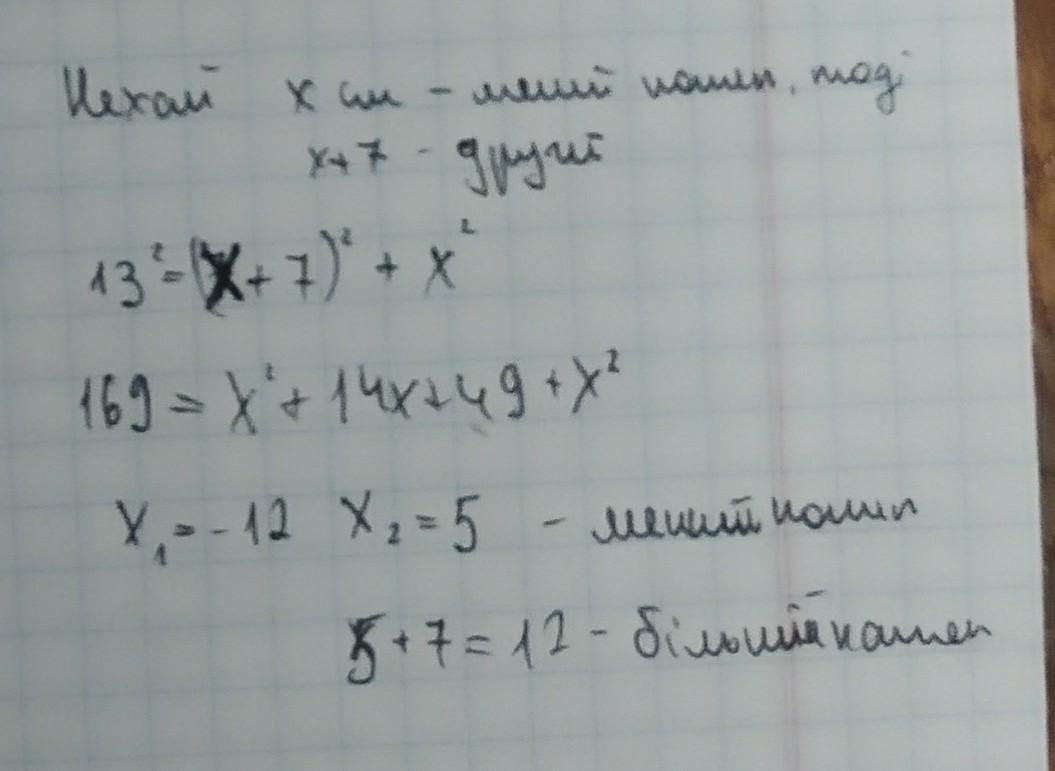 Нехай x см - менший катет, тоді
x+7 - другий
13² = (x+7)² + x²
169 = x² + 14x + 49 + x²
x₁ = -12 x₂ = 5 - менший катет
5 + 7 = 12 - більший катет